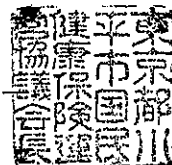 東京都小
平市国民
健康保険運
営協議会長